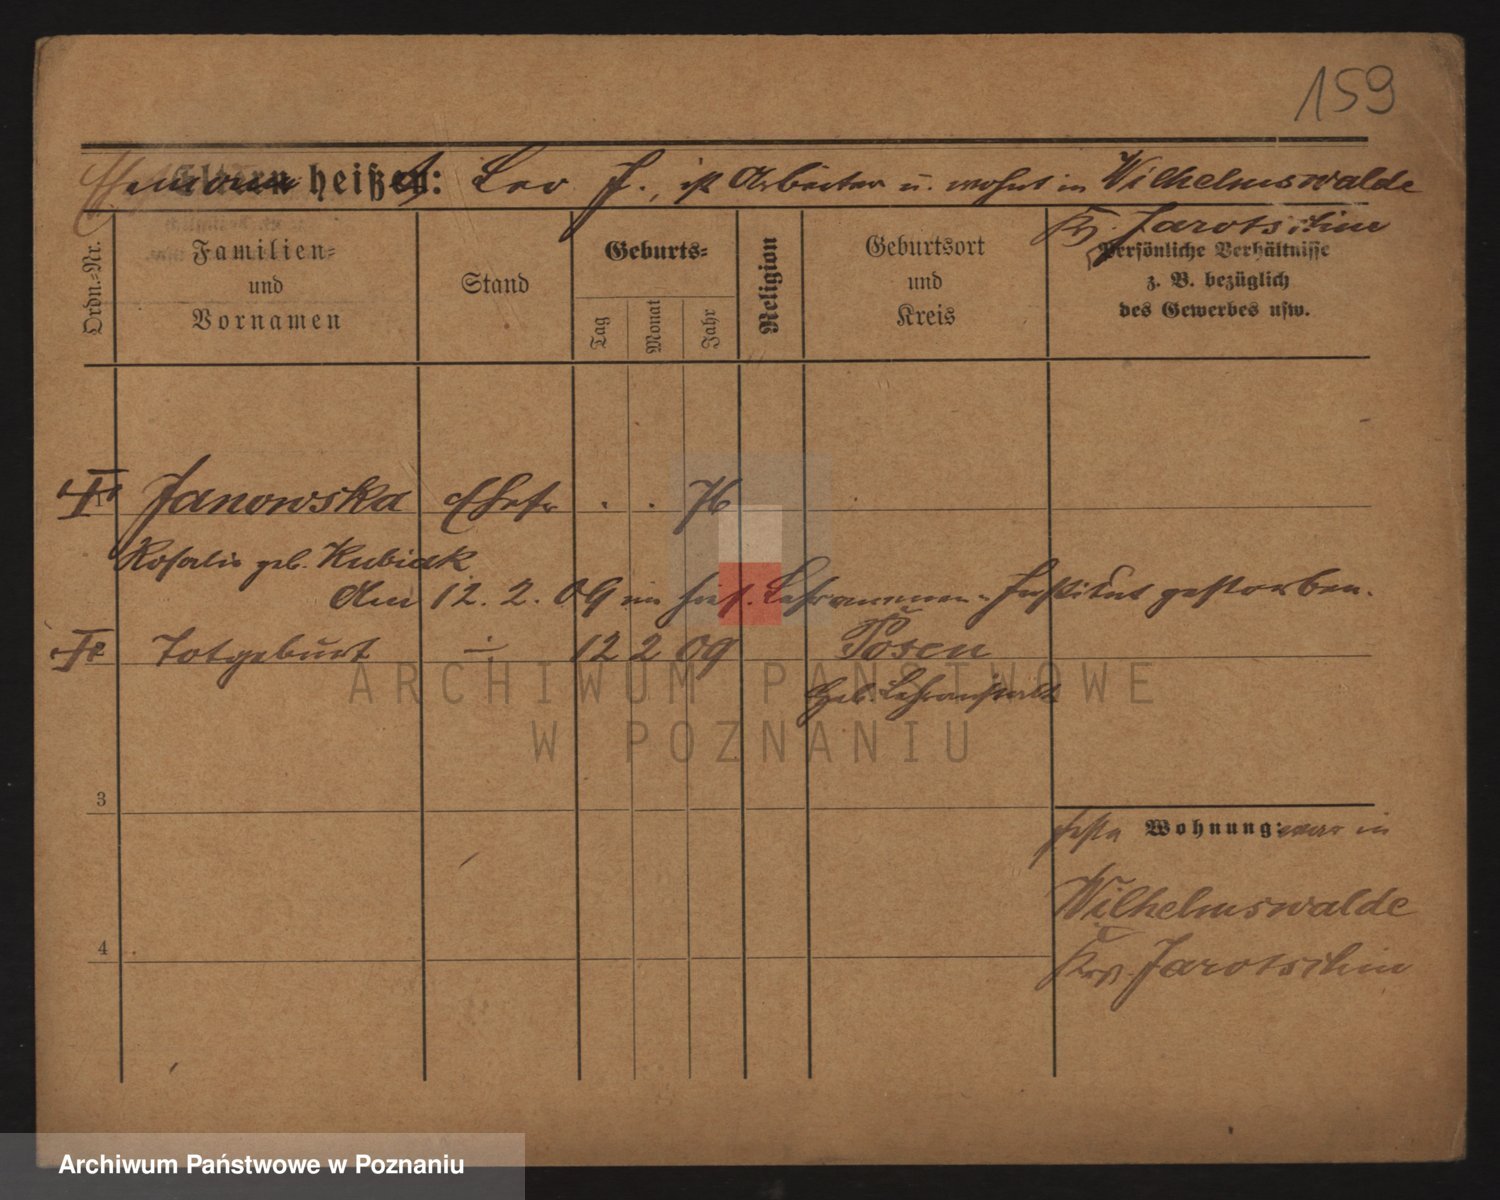 159
Ehemann heißt: Leo J., ist Arbeiter u. wohnt in Wilhelmswalde
Kr. Jarotschin
Ordn.-Nr.
Familien-
und
Vornamen
Stand
Geburts-
Tag
Monat
Jahr
Religion
Geburtsort
und
Kreis
Persönliche Verhältnisse
z. B. bezüglich
des Gewerbes usw.
Janowska Ehefr. . . 76
Rosalie geb. Kubiak
Am 12. 2. 09 im hies. Hebammen-Institut gestorben.
Totgeburt ÷ 12 2 09 Posen
3
feste Wohnung: war in
Wilhelmswalde
4
Krs. Jarotschin
ARCHIWUM PAŃSTWOWE
W POZNANIU
Archiwum Państwowe w Poznaniu